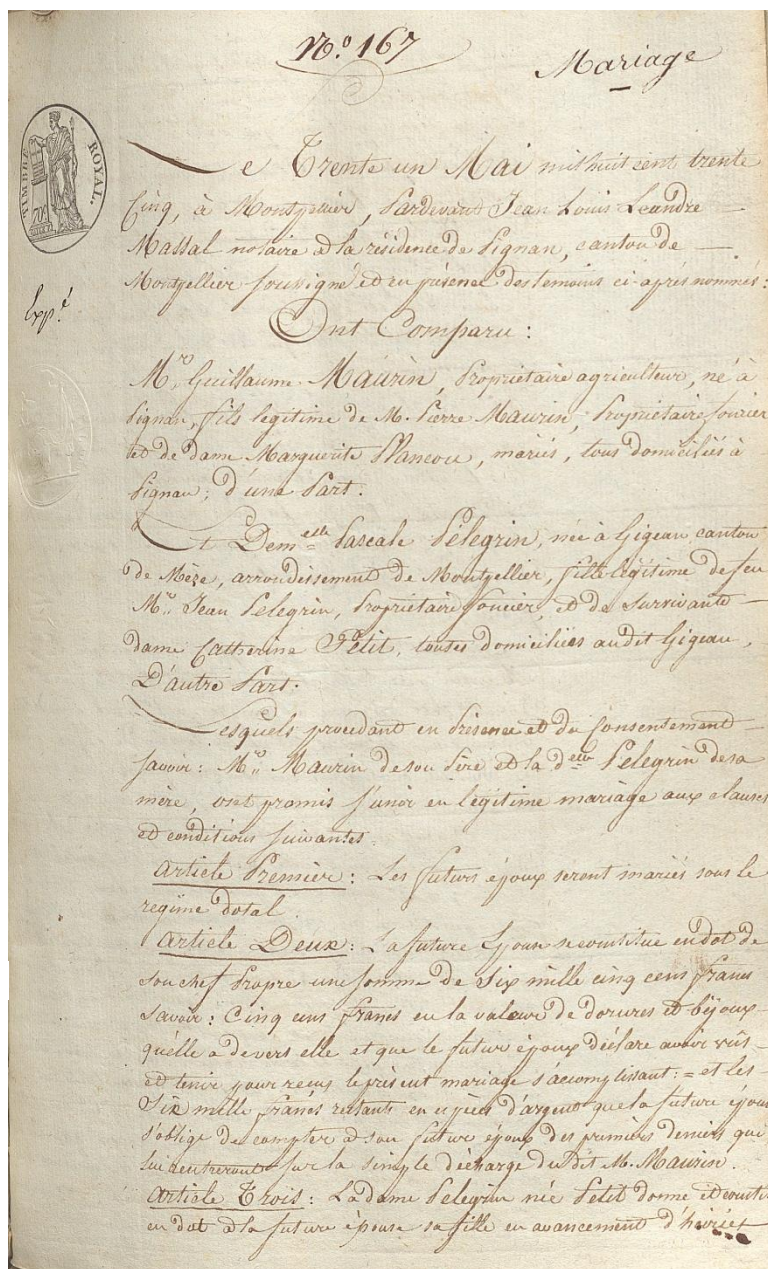 N.º 167
Mariage
TIMBRE ROYAL.
Le Trente un Mai mil huit cent trente
Cinq, à Montpellier, Pardevant Jean Louis Leandre
Massal notaire à la résidence de Pignan, canton de
Montpellier soussigné et en présence des temoins ci-après nommés :
Exp.é
Ont Comparu :
M.r Guillaume Maurin, Propriétaire agriculteur, né à
Pignan, fils legitime de M. Pierre Maurin, Propriétaire foncier
et de dame Marguerite Plancou, mariés, tous domiciliés à
Pignan ; d'une Part.
Et Dem.elle Pascale Pélegrin, née à Gigean canton
de Mèze, arrondissement de Montpellier, fille légitime de feu
M.r Jean Pelegrin, Propriétaire foncier, et de survivante
dame Catherine Petit, toutes domiciliées audit Gigean,
D'autre Part.
Lesquels procedant en Présence et du consentement
savoir : M.r Maurin de son Père et la d.elle Pelegrin de sa
mère, ont promis s'unir en légitime mariage aux clauses
et conditions suivantes.
Article Premier : Les futurs époux seront mariés sous le
regime dotal.
Article Deux : La future Epouse se constitue en dot de
son chef Propre une somme de Six mille cinq cens francs
savoir : Cinq cens francs en la valeur de dorures et bijoux
qu'elle a devers elle et que le futur époux déclare avoir vûs
et tenir pour reçus le présent mariage s'accomplissant : = et les
Six mille francs restants en espèces d'argent que la future épouse
s'oblige de compter à son futur époux des premiers deniers qui
lui rentreront sur la simple décharge du dit M. Maurin.
Article Trois : La dame Pelegrin née Petit donne et constitue
en dot à la future épouse sa fille en avancement d'hoirie